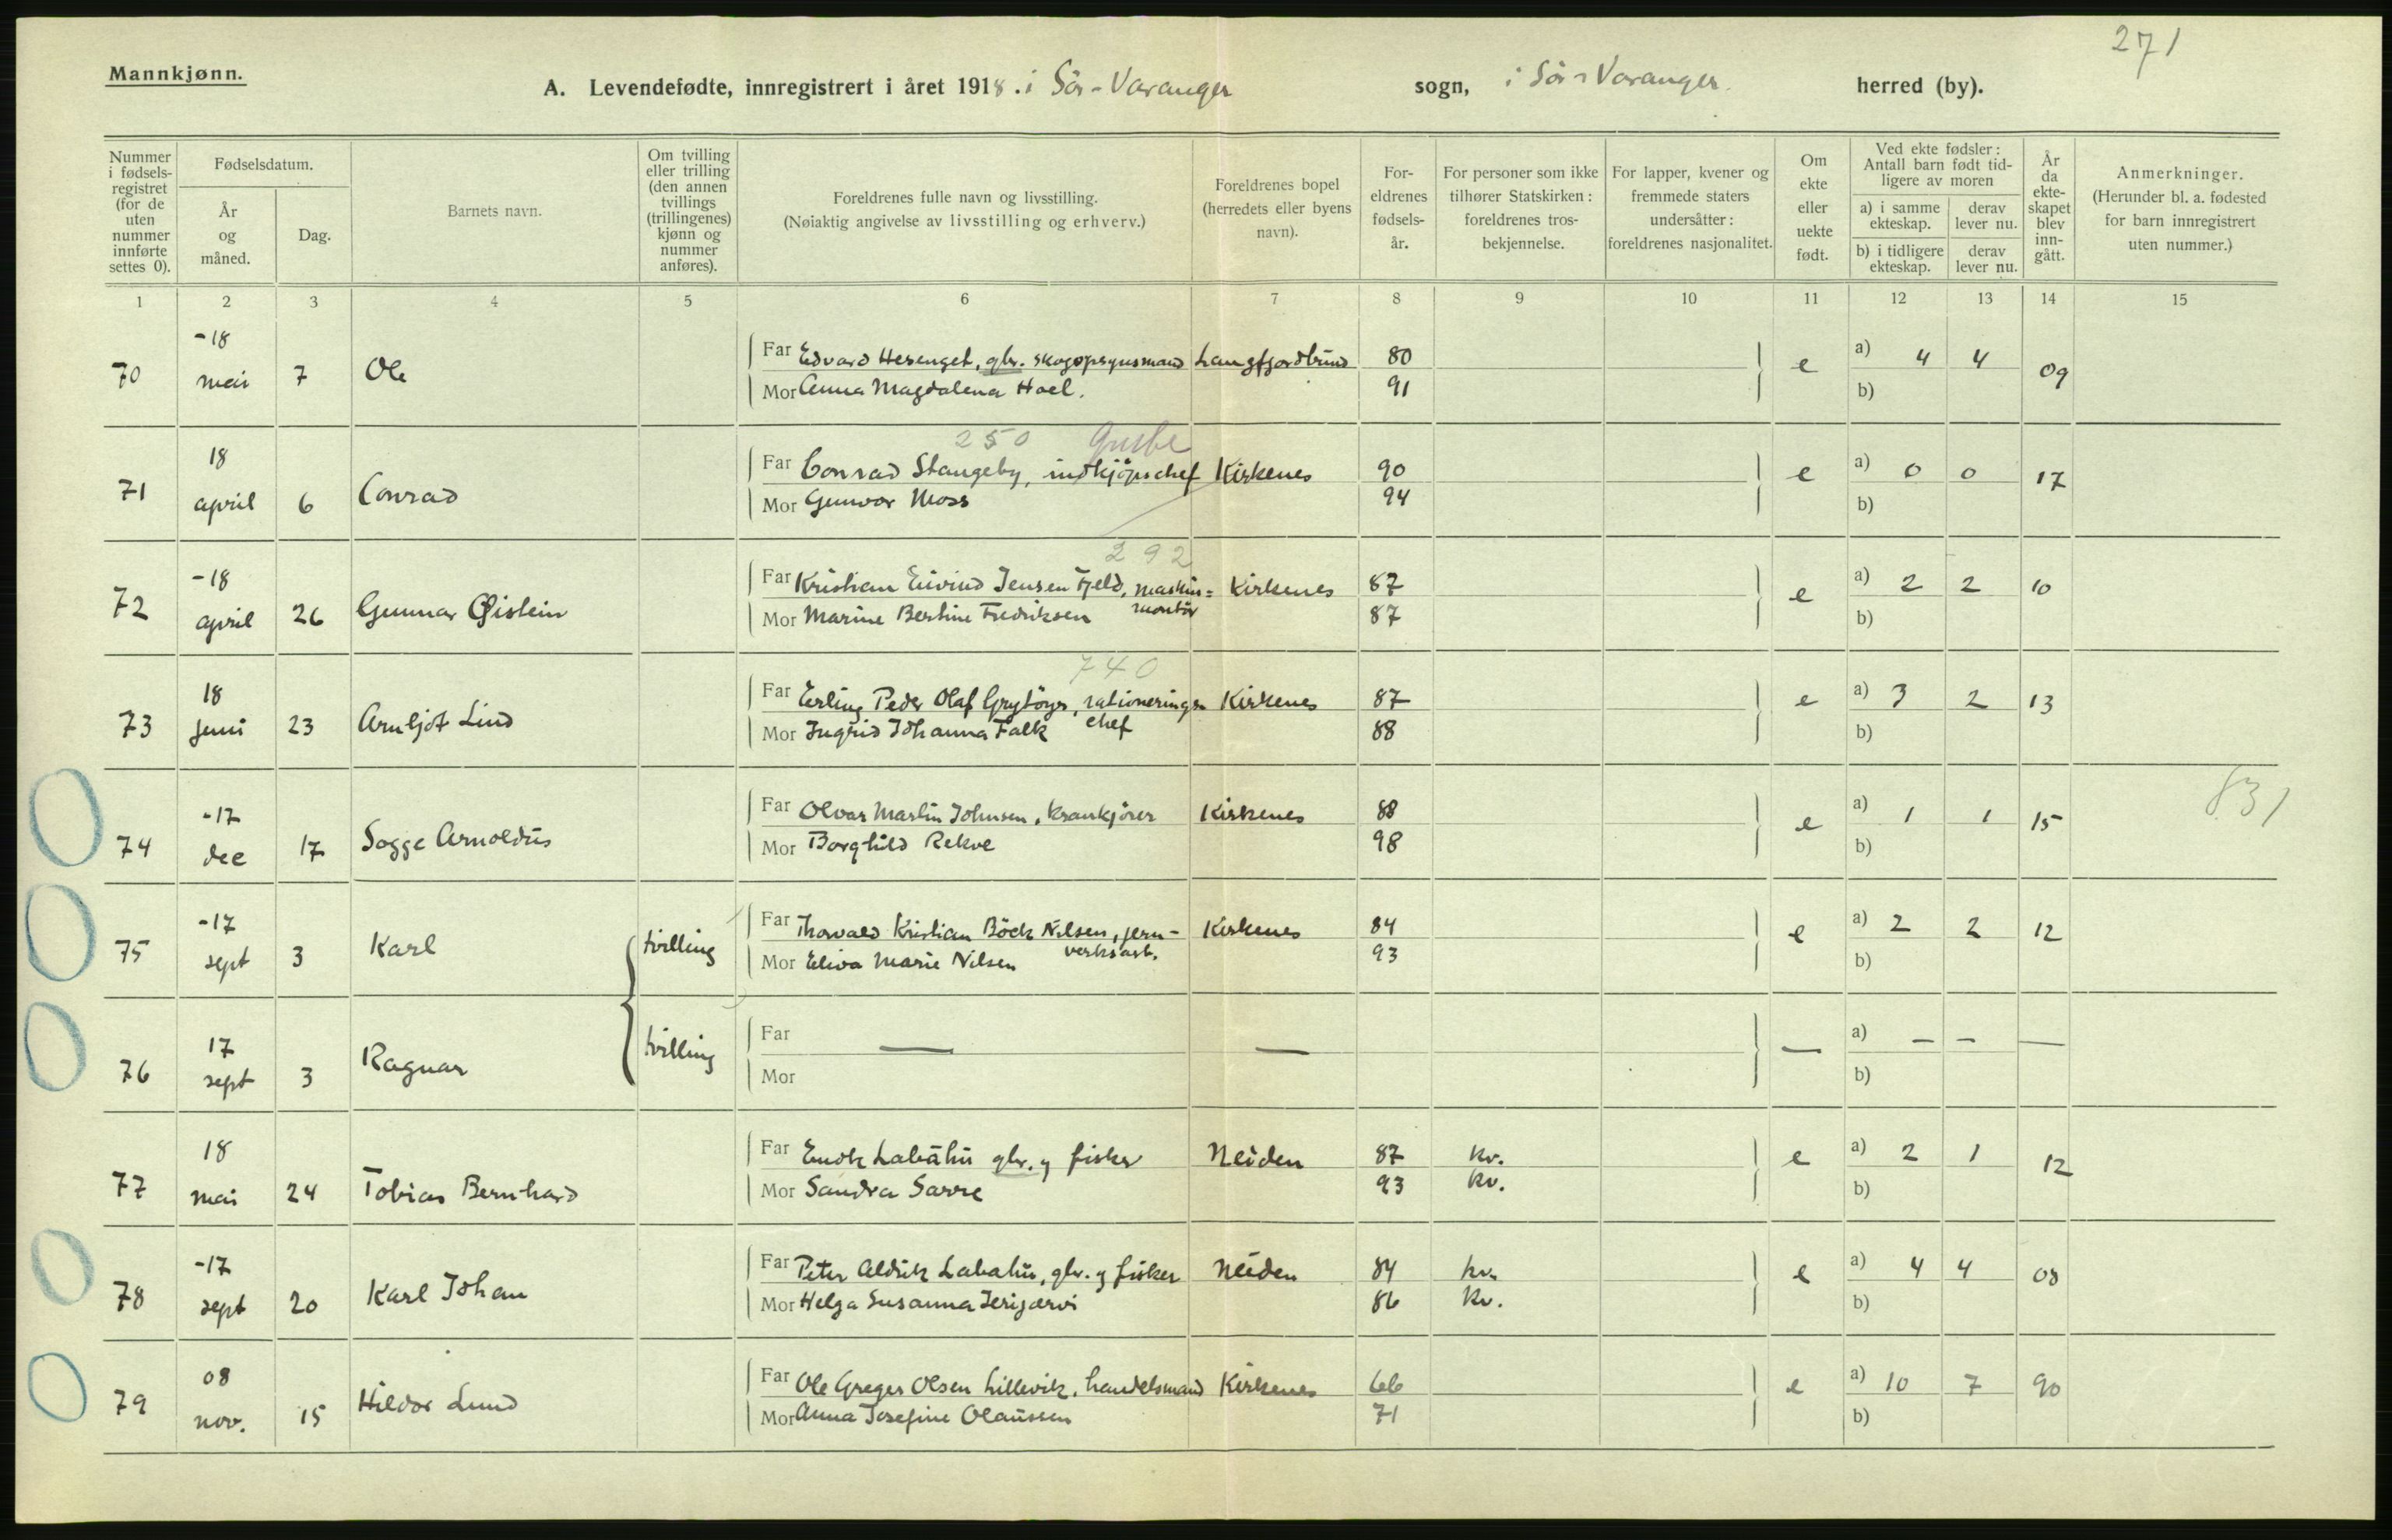 271
Mannkjønn.
A. Levendefødte, innregistrert i året 1918. i Sör-Varanger sogn, i Sör-Varanger herred (by).
Nummer i fødsels-registret (for de uten nummer innførte settes 0).
Fødselsdatum.
År og måned.
Dag.
Barnets navn.
Om tvilling eller trilling (den annen tvillings (trillingenes) kjønn og nummer anføres).
Foreldrenes fulle navn og livsstilling.
(Nøiaktig angivelse av livsstilling og erhverv.)
Foreldrenes bopel (herredets eller byens navn).
For-eldrenes fødsels-år.
For personer som ikke tilhører Statskirken: foreldrenes tros-bekjennelse.
For lapper, kvener og fremmede staters undersåtter: foreldrenes nasjonalitet.
Om ekte eller uekte født.
Ved ekte fødsler: Antall barn født tid-ligere av moren
a) i samme ekteskap. derav lever nu.
b) i tidligere ekteskap. derav lever nu.
År da ekte-skapet blev inn-gått.
Anmerkninger.
(Herunder bl. a. fødested for barn innregistrert uten nummer.)
1 2 3 4 5 6 7 8 9 10 11 12 13 14 15
70 -18 mai 7 Ole
Far Edvard Hesenget, gbr. skogopsynsmand Langfjordbund 80 e a) 4 4 09
Mor Anna Magdalena Hoel. 91 b)
250 Grube
71 18 april 6 Conrad
Far Conrad Stangeby, indkjöpschef Kirkenes 90 e a) 0 0 17
Mor Gunvor Moss 94 b)
292
72 -18 april 26 Gunnar Øistein
Far Kristian Eivind Jensen Fjeld, maskin= Kirkenes 87 e a) 2 2 10
montör
Mor Marine Bertine Fredriksen 87 b)
740
73 18 juni 23 Arnljot Lind
Far Erling Peder Olaf Grytöyr, rationerings- Kirkenes 87 e a) 3 2 13
chef
Mor Ingrid Johanna Falk 88 b)
831
74 -17 dec 17 Sogge Arnoldus
Far Olvar Martin Johnsen, krankjörer Kirkenes 88 e a) 1 1 15
Mor Borghild Rekve 98 b)
75 -17 sept 3 Karl tvilling
Far Thorvald Kristian Böck Nilsen, jern- Kirkenes 84 e a) 2 2 12
verksarb.
Mor Eliva Marie Nilsen 93 b)
76 17 sept 3 Ragnar tvilling
Far — — — a) — — —
Mor b)
77 18 mai 24 Tobias Bernhard
Far Enok Labahü gbr. og fisker Neiden 87 kv. e a) 2 1 12
Mor Sandra Sarre 93 kv. b)
78 -17 sept 20 Karl Johan
Far Peter Aldrik Labahü, gbr. og fisker Neiden 84 kv. e a) 4 4 08
Mor Helga Susanna Jerijærvi 86 kv. b)
79 08 nov. 15 Hildor Lund
Far Ole Greger Olsen Lillevik, handelsmand Kirkenes 66 e a) 10 7 90
Mor Anna Josefine Olaussen 71 b)